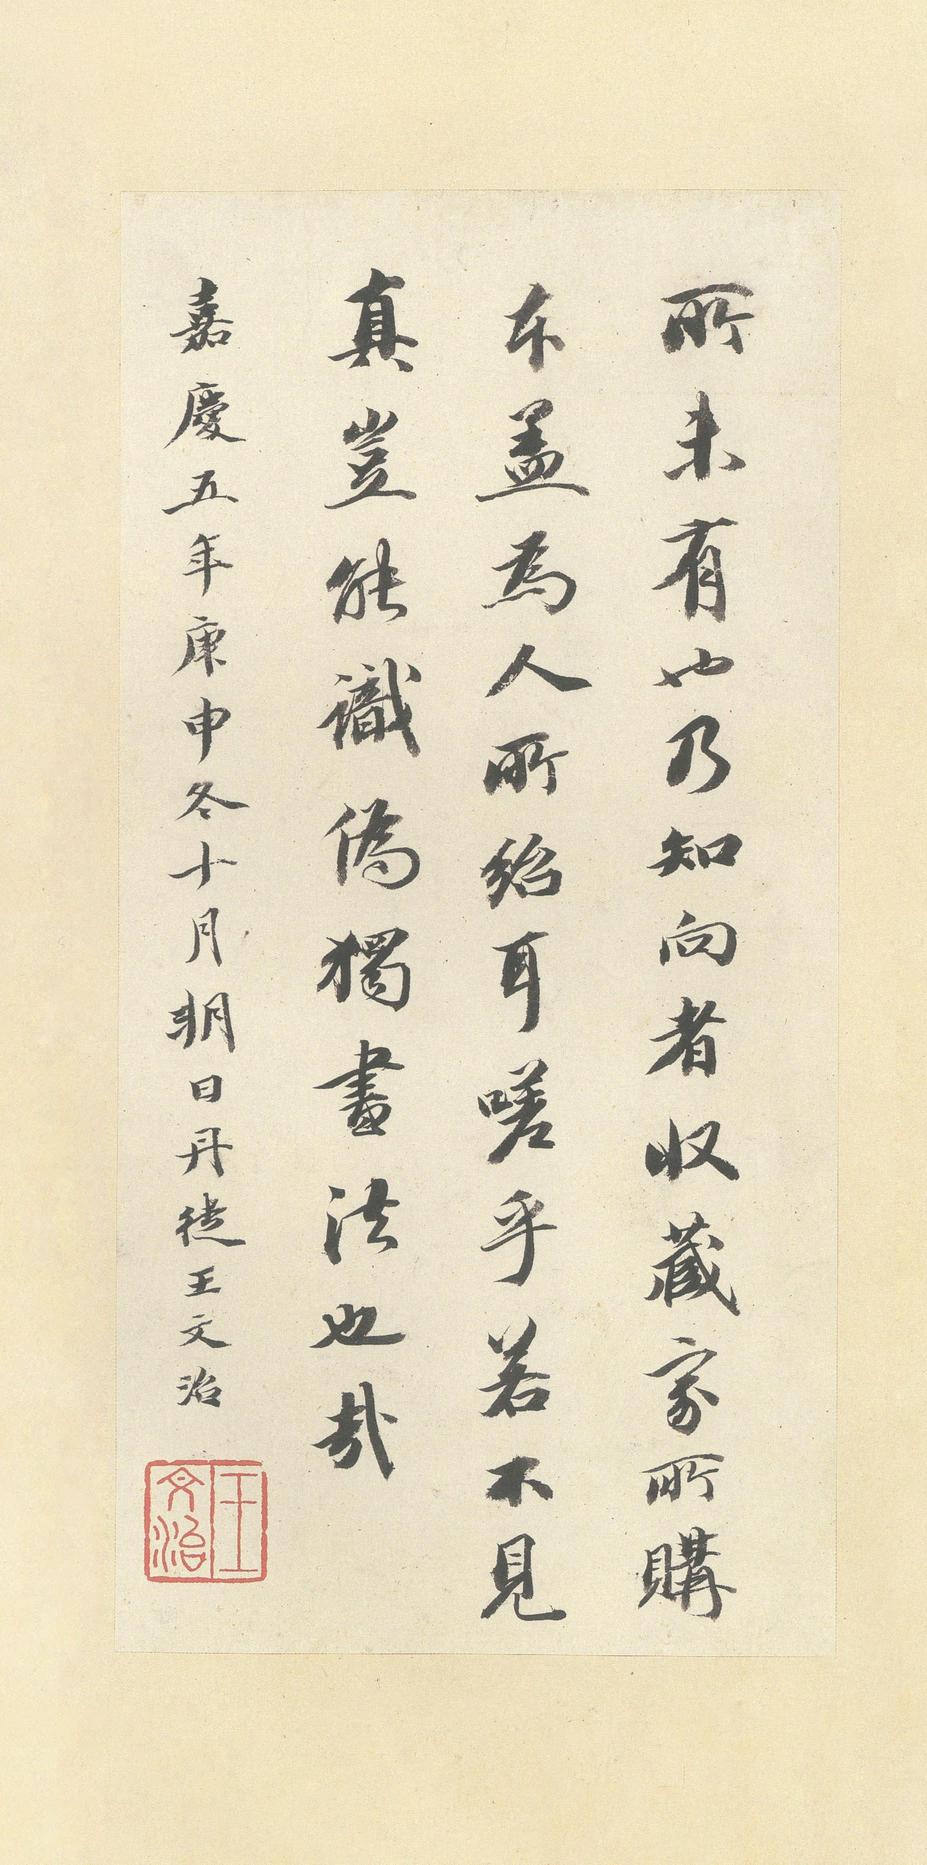 所未有也乃知向者收藏家所購
本盖為人所紿耳嗟乎若不見
真豈能識偽獨畫法也哉
嘉慶五年庚申冬十月朔日丹徒王文治
王文治